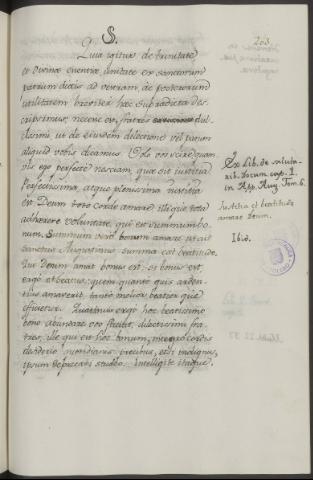 203
S.
Quia igitur de trinitate
et divinæ essentiæ unitate ex sanctorum
patrum dictis ad vestram, ac posterorum
utilitatem breviter hæc subtradita des-
cripsimus, necesse est, fratres dul-
cissimi, ut de eiusdem dilectione vel parum
aliquid vobis dicamus. Volo vos scire quam-
vis ego perfecte nesciam, quæ sit iustitia
Perfectissima, atque plenissima iustitia
est Deum toto corde amare illique tota
adhærere voluntate, qui est summum bo-
num. Summum vero bonum amare, sicut ait
sanctus Augustinus summa est beatitudo.
Qui Deum amat bonus est: si bonus est,
ergo et beatus: quem quanto quis arden-
tius amaverit, tanto melior, beatior que
efficietur. Quatenus ergo hoc beatissimo
bono abundare vos faciat, dilectissimi fra-
tres, ille qui est hoc bonum, integro cordis
desiderio quotidianis precibus, etsi indignus,
ipsum deprecari studeo. Intelligite itaque,
Ex Lib. de saluta-
rib. docum. cap. I.
in App. Aug. Tom. 6.
Iustitia et beatitudo
amare Deum.
Ibid.